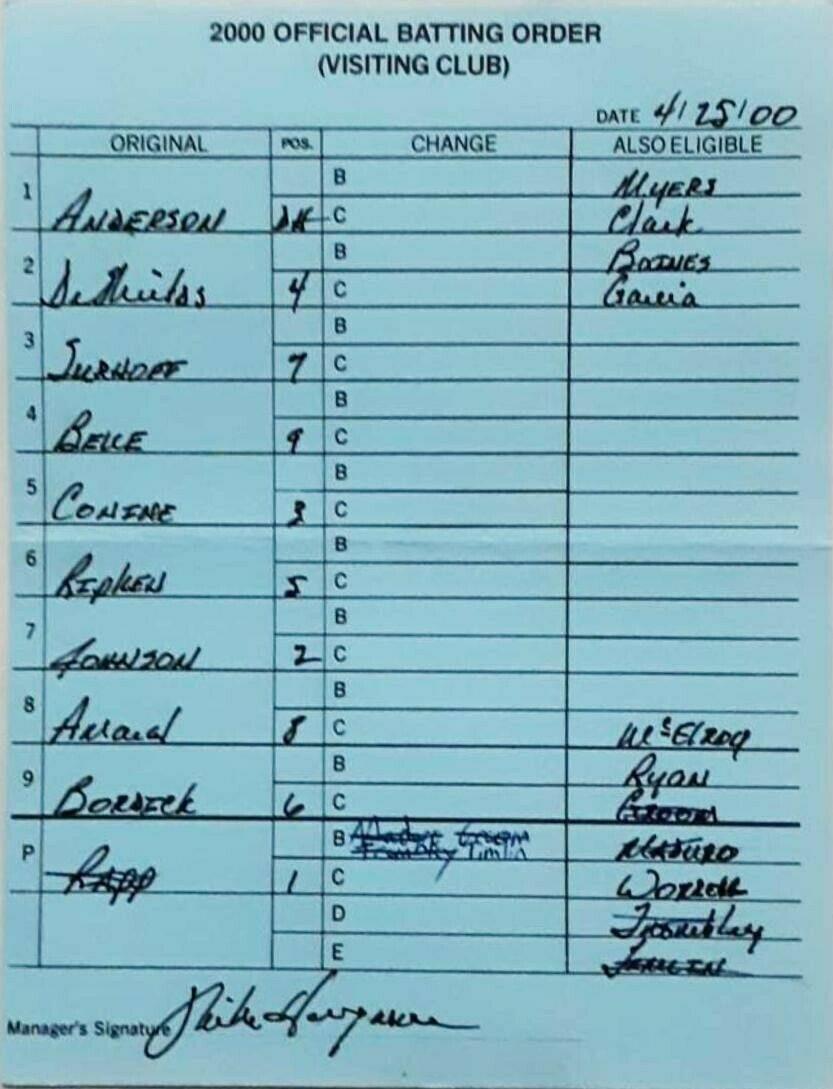 2000 OFFICIAL BATTING ORDER
(VISITING CLUB)
DATE 4/25/00
ORIGINAL POS. CHANGE ALSO ELIGIBLE
B MYERS
1 ANDERSON DH C Clark
B BAINES
2 DeShields 4 C Garcia
B
3 SURHOFF 7 C
B
4 BELLE 9 C
B
5 CONINE 3 C
B
6 RIPKEN 5 C
B
7 JOHNSON 2 C
B
8 Amaral 8 C McElroy
B Ryan
9 BORDICK 6 C GROOM
P B Maduro Groom MADURO
Trombley Timlin
RAPP 1 C WORRELL
D Trombley
E TIMLIN
Manager's Signature Mike Hargrove